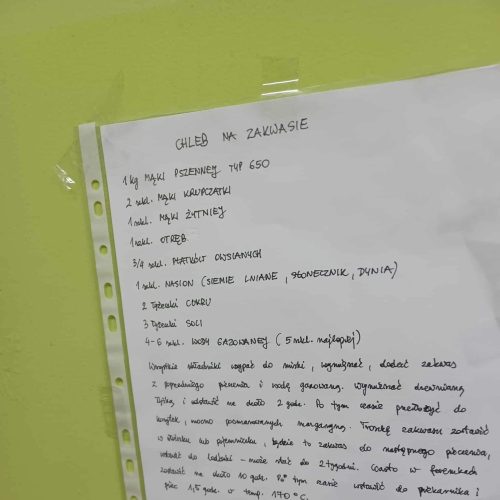 CHLEB NA ZAKWASIE
1 kg MĄKI PSZENNEJ TYP 650
2 szkl. MĄKI KRUPCZATKI
1 szkl. MĄKI ŻYTNIEJ
1 szkl. OTRĘB
3/4 szkl. PŁATKÓW OWSIANYCH
1 szkl. NASION (SIEMIE LNIANE, SŁONECZNIK, DYNIA)
2 łyżeczki CUKRU
3 łyżeczki SOLI
4-6 szkl. WODY GAZOWANEJ (5 szkl. najlepiej)
Wszystkie składniki wsypać do miski, wymieszać, dodać zakwas
z poprzedniego pieczenia i wodę gazowaną. Wymieszać drewnianą
łyżką i odstawić na około 2 godz. Po tym czasie przełożyć do
keksówek, mocno posmarowanych margaryną. Trochę zakwasu zostawić
w słoiku lub pojemniku, będzie to zakwas do następnego pieczenia,
wstawić do lodówki - może stać do 2 tygodni. Ciasto w foremkach
zostawić na około 10 godz. Po tym czasie wstawić do piekarnika i
piec 1,5 godz. w temp. 170°C.